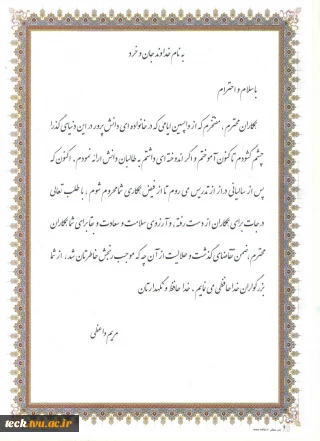 به نام خداوند جان و خرد
با سلام و احترام
همکاران محترم ، مفتخرم که از واپسین ایامی که در خانواده ای دانش پرور در این دنیای گذرا
چشم گشودم تا کنون آموختم و اگر اندوخته ای داشتم به طالبان دانش ارائه نمودم . اکنون که
پس از سالیانی دراز از تدریس می روم تا از فیض همکاری شما محروم شوم ، با طلب تعالی
درجات برای همکاران از دست رفته ، و آرزوی سلامت و سعادت و جا برای شما همکاران
محترم ، ضمن تقاضای گذشت و حلالیت از آن چه که موجب رنجش خاطرتان شد ، از شما
بزرگواران خداحافظی می نمایم . خدا حافظ و نگهدارتان
مریم واعظی
teck.tvu.ac.ir